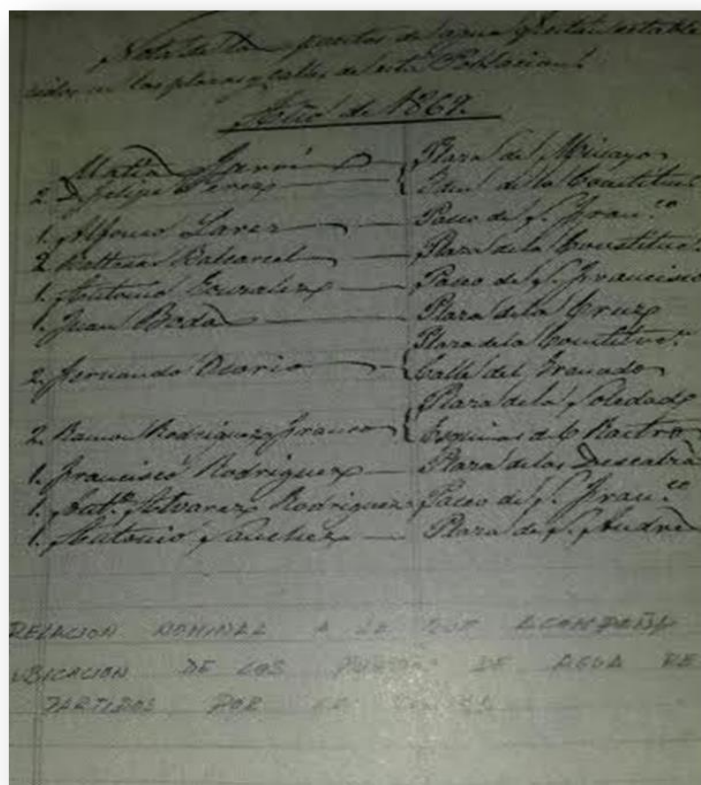 Nota de los puestos de agua y estable
cidos en las plazas y calles de esta Poblacion.
Año de 1869.
Matia Garri — Plaza del Minayo
2. Felipe Perez — Idm. de la Constitucn.
1. Alfonso Larez — Paseo de S. Fran.co
2. Baltasar Balcarcel — Plaza de la Constitucn.
1. Antonio Gonzalez — Paseo de S. Francisco
1. Juan Boda — Plaza de la Cruz
Plaza de la Constitucn.
2. Fernando Osorio — Calle del Granado
Plaza de la Soledad
2. Ramon Rodriguez Franco Esquinas del Rastro
1. Francisco Rodriguez — Plaza de las Descalza
1. Ant.o Alvarez Rodriguez Paseo de S. Fran.co
1. Antonio Sanchez — Plaza de S. Andre
RELACION NOMINAL A LA QUE ACOMPAÑA
UBICACION DE LOS PUESTOS DE AGUA RE
PARTIDOS POR